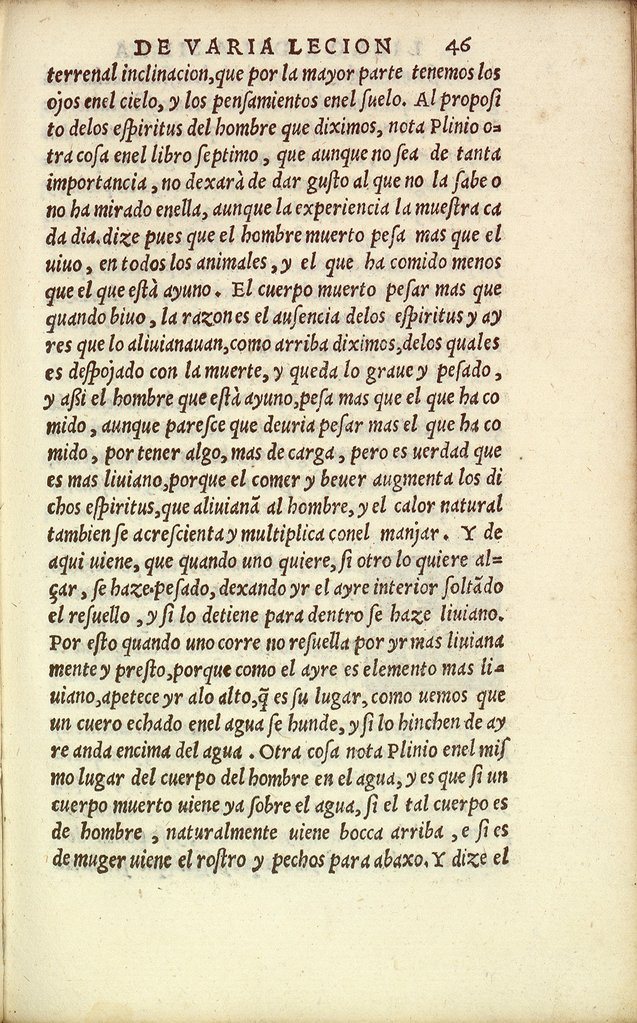 DE VARIA LECION 46
terrenal inclinacion,que por la mayor parte tenemos los
ojos enel cielo, y los penſamientos enel ſuelo. Al propoſi
to delos eſpiritus del hombre que diximos, nota Plinio o=
tra coſa enel libro ſeptimo, que aunque no ſea de tanta
importancia, no dexarà de dar guſto al que no la ſabe o
no ha mirado enella, aunque la experiencia la mueſtra ca
da dia. dize pues que el hombre muerto peſa mas que el
uiuo, en todos los animales, y el que ha comido menos
que el que eſtà ayuno. El cuerpo muerto peſar mas que
quando biuo, la razon es el auſencia delos eſpiritus y ay
res que lo aliuianauan,como arriba diximos,delos quales
es deſpojado con la muerte, y queda lo graue y peſado,
y aßi el hombre que eſtà ayuno,peſa mas que el que ha co
mido, aunque pareſce que deuria peſar mas el que ha co
mido, por tener algo, mas de carga, pero es verdad que
es mas liuiano,porque el comer y beuer augmenta los di
chos eſpiritus,que aliuianã al hombre, y el calor natural
tambien ſe acreſcienta y multiplica conel manjar. Y de
aqui uiene, que quando uno quiere, ſi otro lo quiere al=
çar, ſe haze peſado, dexando yr el ayre interior ſoltãdo
el reſuello, y ſi lo detiene para dentro ſe haze liuiano.
Por eſto quando uno corre no reſuella por yr mas liuiana
mente y preſto,porque como el ayre es elemento mas li=
uiano,apetece yr alo alto,q̃ es ſu lugar, como uemos que
un cuero echado enel agua ſe hunde, y ſi lo hinchen de ay
re anda encima del agua. Otra coſa nota Plinio enel miſ
mo lugar del cuerpo del hombre en el agua, y es que ſi un
cuerpo muerto uiene ya ſobre el agua, ſi el tal cuerpo es
de hombre, naturalmente uiene bocca arriba, e ſi es
de muger uiene el roſtro y pechos para abaxo. Y dize el